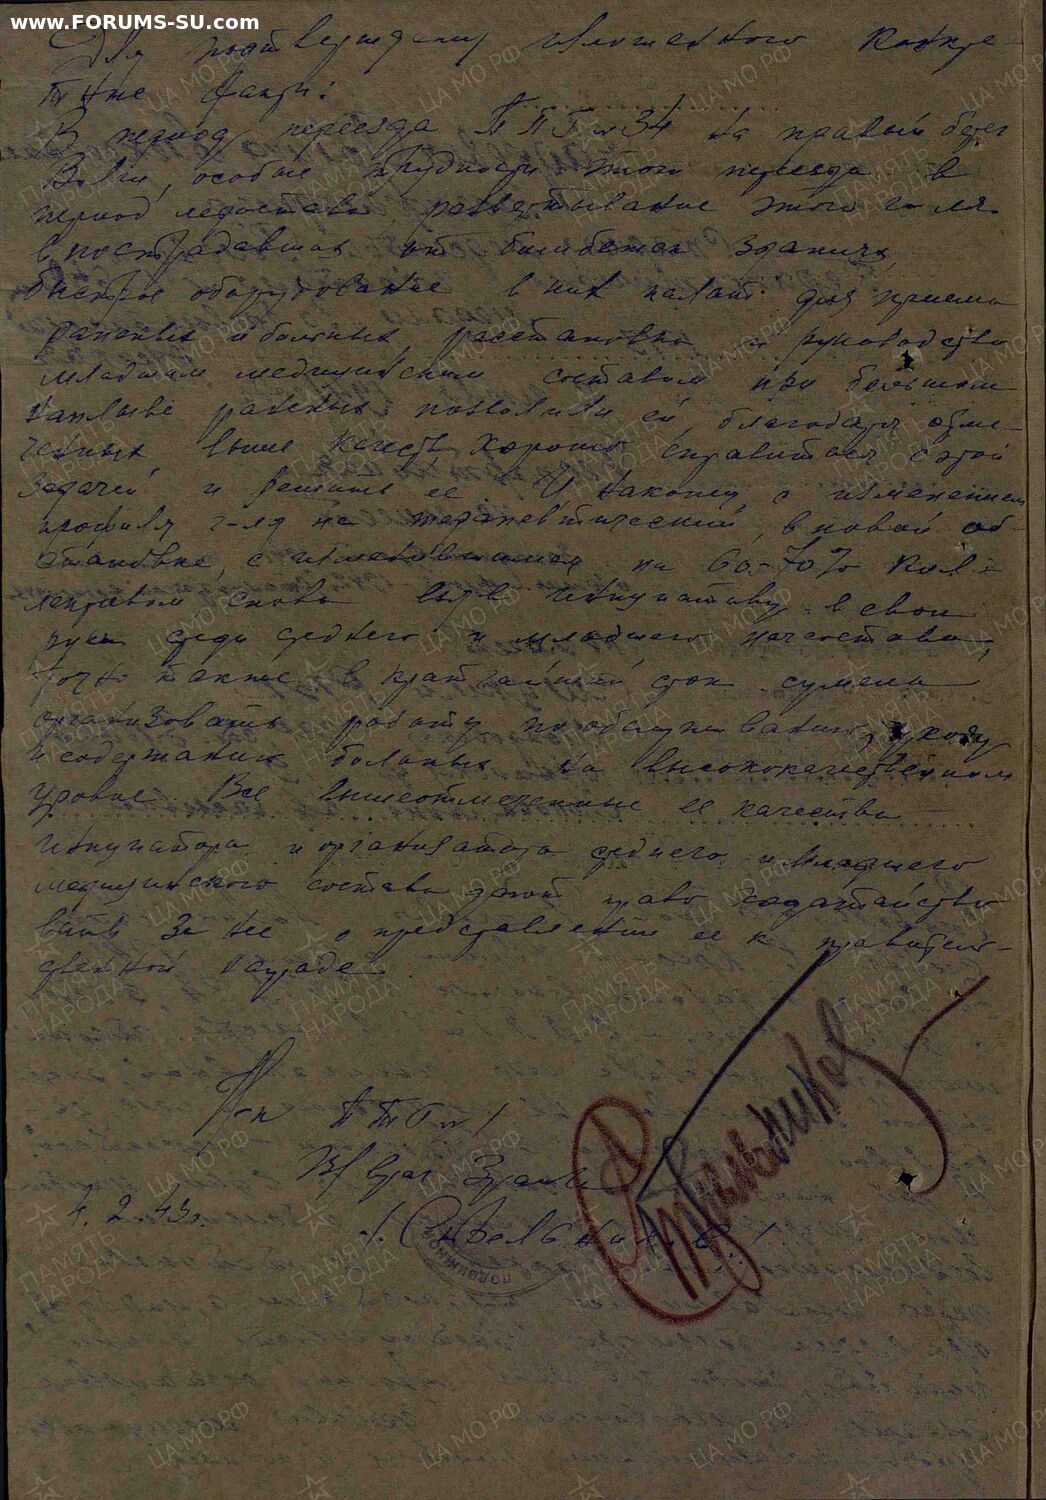 www.FORUMS-SU.com
Для подтверждения изложенного конкре-
тные факты:
В период переезда ППГ № 34 на правый берег
Волги, особые трудности этого переезда в
период ледостава, развертывание этого г-ля
в пострадавших от бомбежек зданиях,
быстрое оборудование в них палат для приема
раненых и больных, расстановка и руководство
младшим медицинским составом при большом
наплыве раненых позволили ей, благодаря отме-
ченных выше качеств хорошо справиться с этой
задачей и решить ее. И наконец, с изменением
профиля г-ля на терапевтический, в новой об-
становке, с изменившимся на 60-70% кол-
лективом снова взяв инициативу в свои
руки среди среднего и младшего начсостава,
точно также в кратчайший срок сумела
организовать работу по обслуживанию, уходу
и содержанию больных на высококачественном
уровне. Все вышеотмеченные ее качества
инициатора и организатора среднего и младшего
медицинского состава дают право ходатайство-
вать за нее о представлении ее к правитель-
ственной награде.
Н-к ТППГ №
В/врач ранга
4.2.43г. /Стрельников/
Стрельников